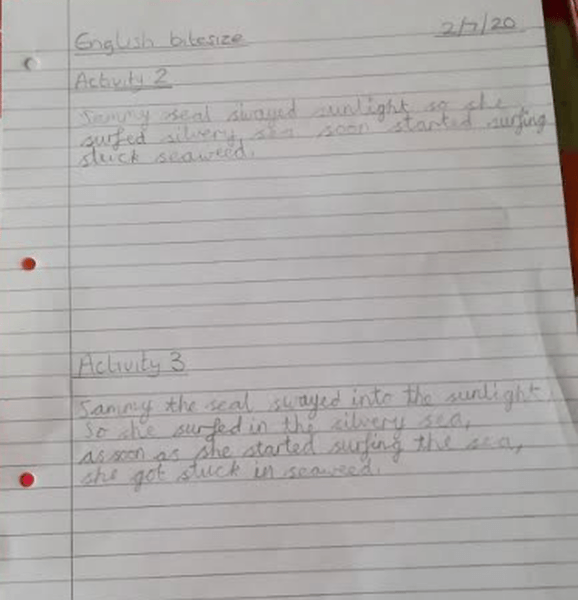 English bitesize
2/7/20
Activity 2
Sammy seal swayed sunlight so she
surfed silvery sea soon started surfing
stuck seaweed.
Activity 3
Sammy the seal swayed into the sunlight
So she surfed in the silvery sea,
as soon as she started surfing the sea,
she got stuck in seaweed.